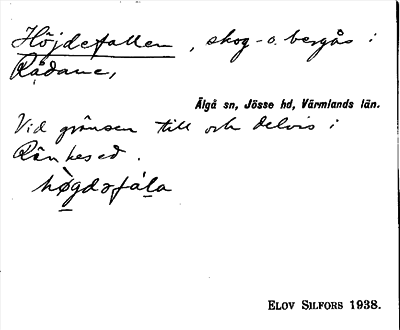 Höjdefallen, skog- o. bergås i
Rådane,
Älgå sn, Jösse hd, Värmlands län.
Vid gränsen till och delvis i
Ränkesed.
hø̀gdəfáḷa
ELOV SILFORS 1938.